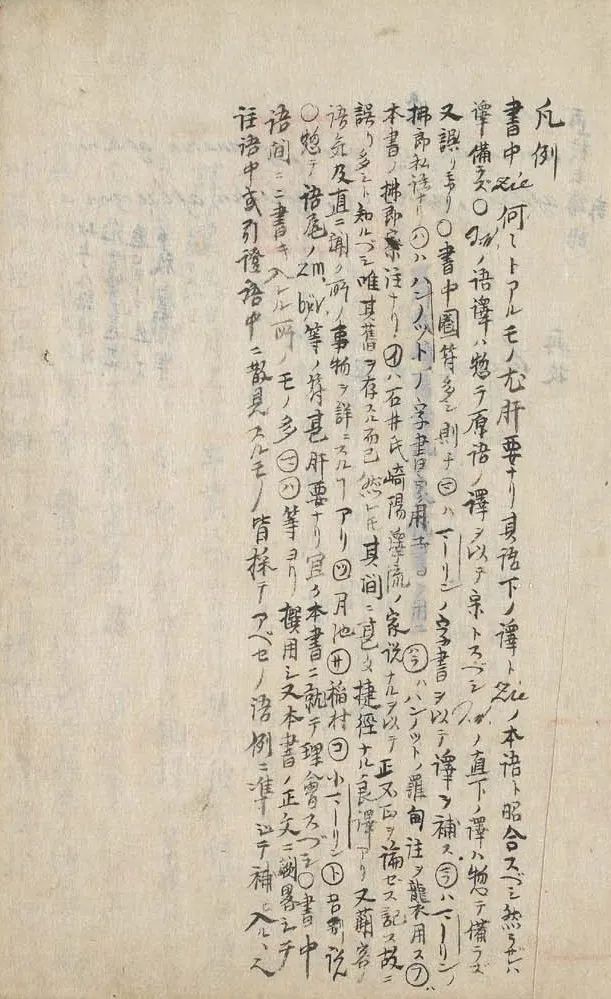 凡例
書中zie何々トアルモノ尤肝要ナリ其語下ノ譯トzieノ本語ト昭合スベシ然ラザレハ
譯備ラズ〇ノ語譯ハ惣テ原語ノ譯ヲ以テ宗トスベシノ直下ノ譯ハ惣テ備ラズ
又誤リ有リ〇書中圏符多シ則チ㋮ハマーリンノ字書ヲ以テ譯ヲ補ス㋮ラハマーリンノ
拂郎私語ナリ㋩ハハンノットノ字書ヲ用ユハラハハンノットノ羅甸注ヲ襲用ス㋫ハ
本書ノ拂郎察注ナリ㋑ハ石井氏崎陽譯流ノ家説ナルヲ以テ正不正ヲ論ゼス記ス故ニ
誤リ多シト知ルベシ唯其舊ヲ存スル而已然レ𪜈其間ニ甚タ捷徑ナル良譯アリ又蘭客ノ
語気及直ニ聞ク所ノ事物ヲ詳ニスルヿアリ㋡月池㋚稲村㋙小マーリン㋣吾別説
〇惣テ語尾ノzm.bijv.等ノ符甚肝要ナリ宜ク本書ニ就テ理會スベシ〇書中
語間ニ書キ入レル所ノモノ多㋮㋩等ヨリ撰用シ又本書ノ正文ニ闕畧シテ
註語中或引證語中ニ散見スルモノ皆採テアベセノ語例ニ準シテ補ヒ入ルヽ